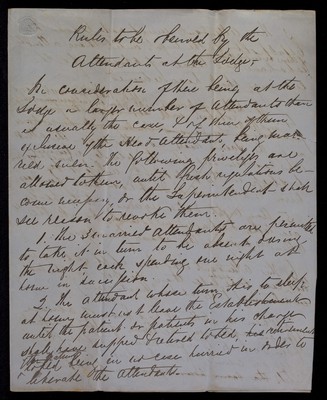 Rules to be observed by the
Attendants at the Lodge.
In consideration of there being at the
Lodge a larger number of Attendants than
is usually the case, & of three of them
exclusive of the Head Attendant being mar
ried, the following privileges are
allowed to them, until fresh regulations be-
come necessary, or the Superintendent shall
see reason to revoke them.
1. The married Attendants are permitted
to take it in turn to be absent during
the night each spending one night at
home in succession
2. The Attendant whose turn it is to sleep
at home must not leave the Establishment
until the patient or patients in his charge
shall have supped & retired to bed,
to bed being in no case hurried in order to
liberate the Attendants.